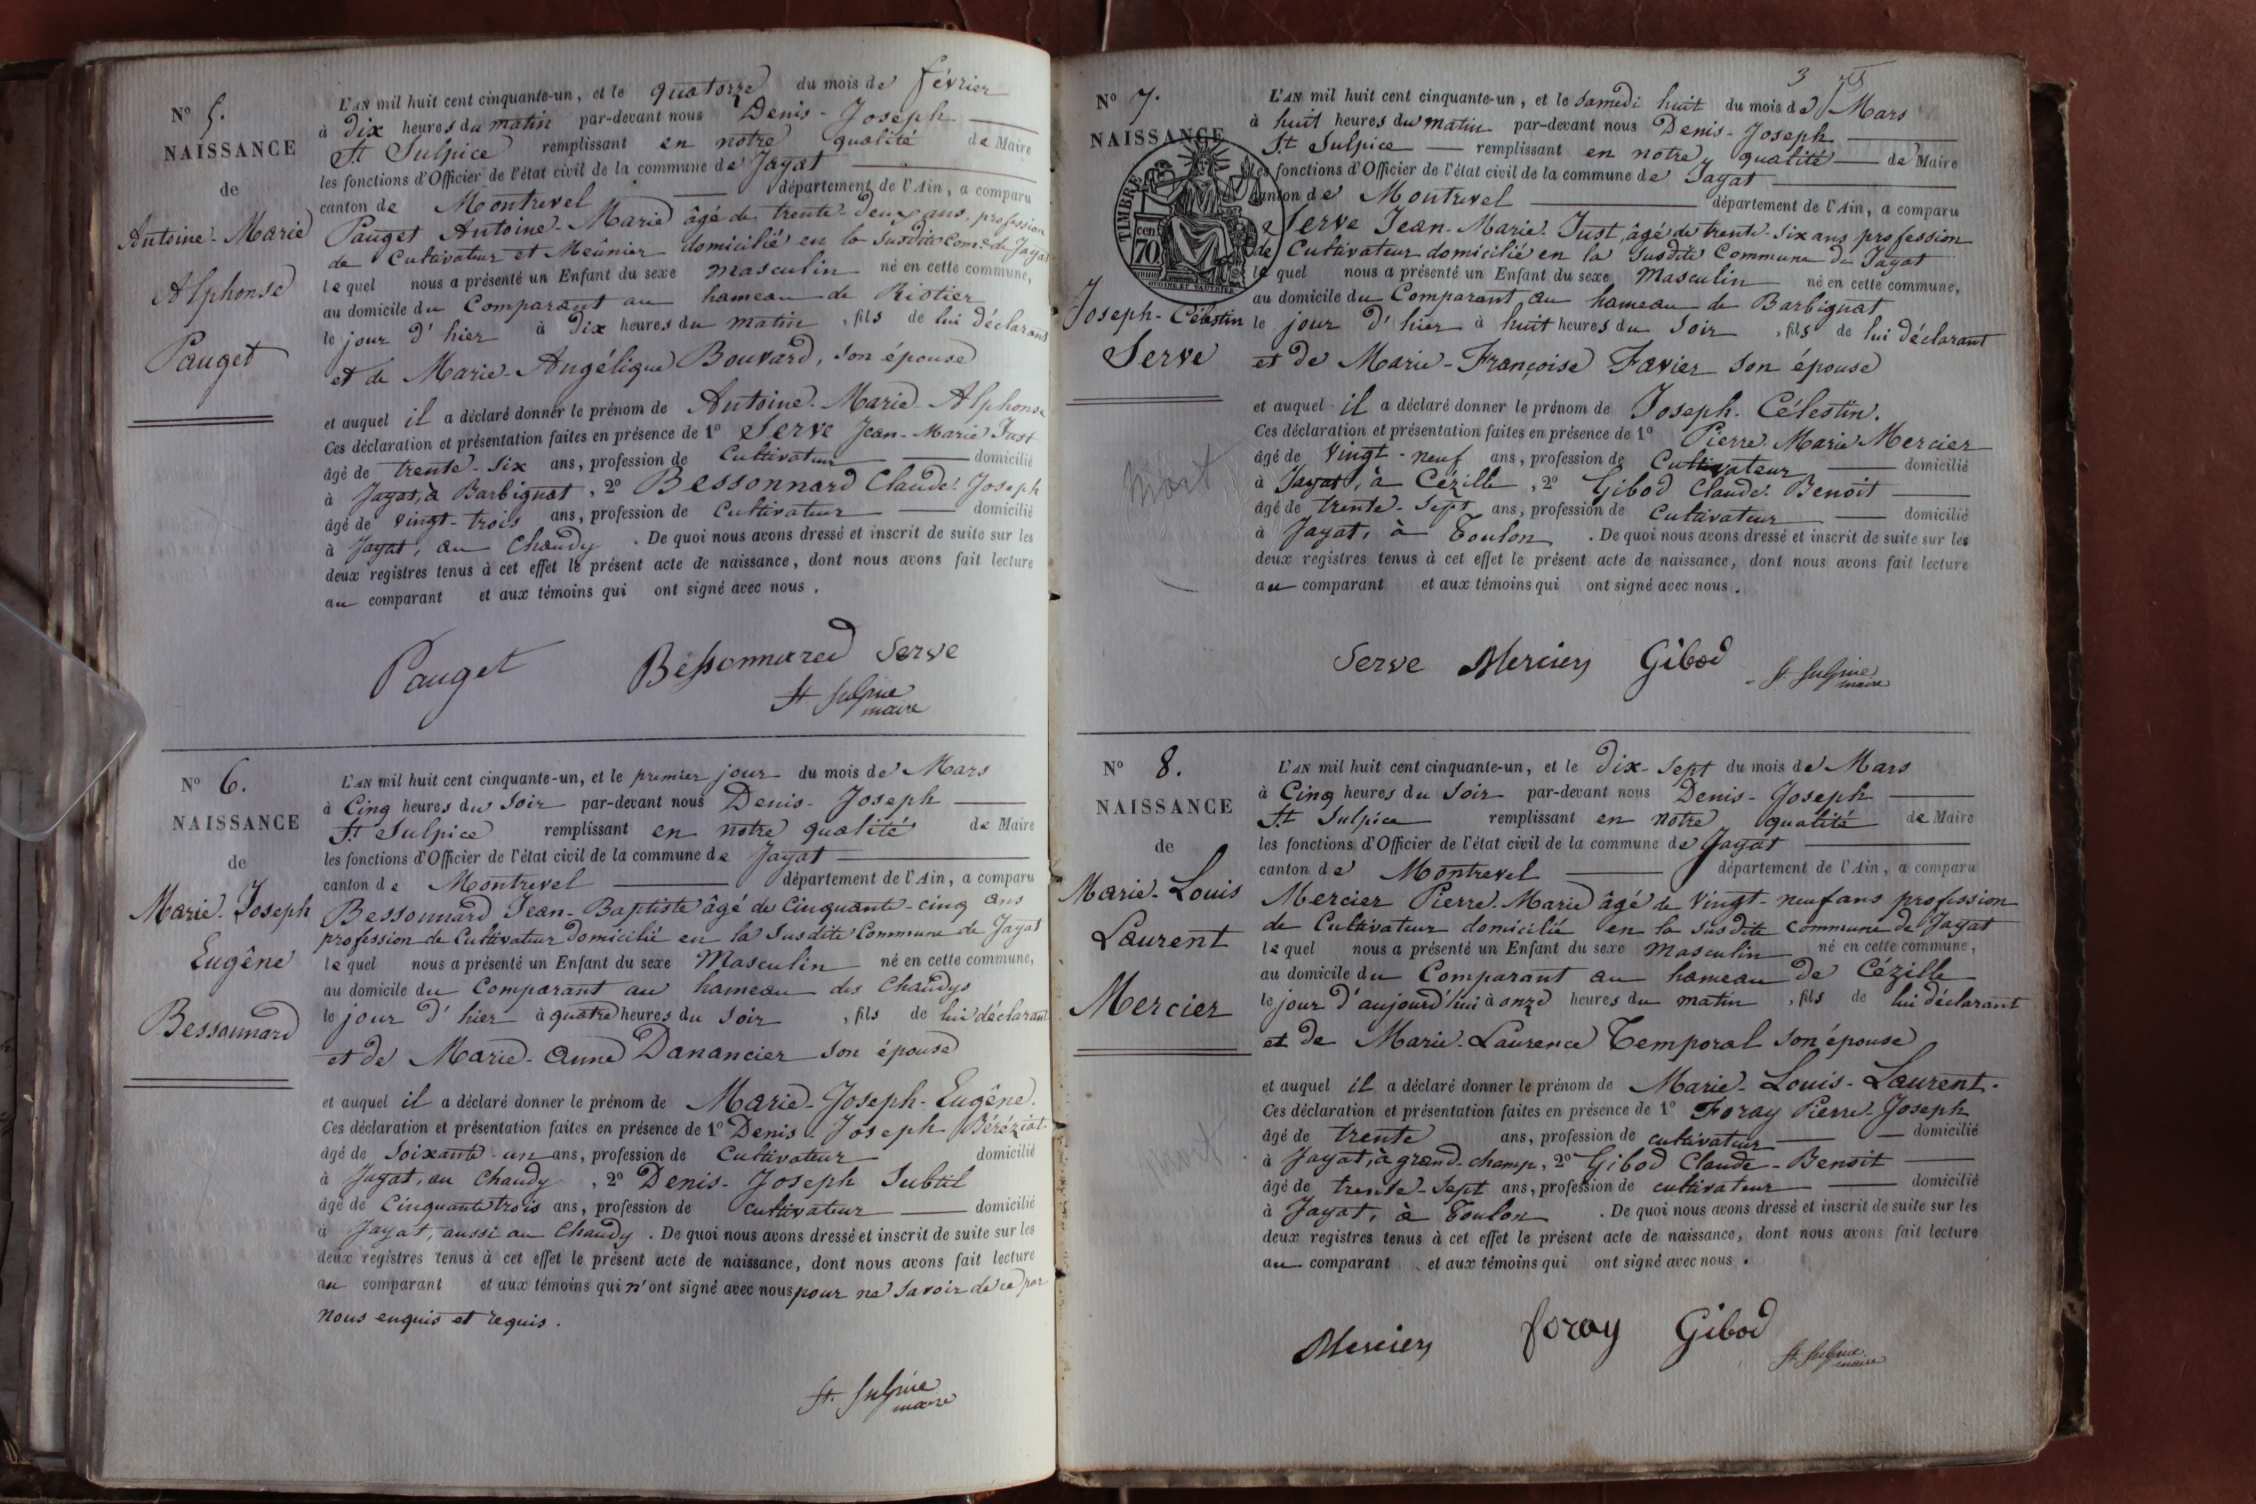 N° 5.
NAISSANCE
de
Antoine-Marie
Alphonse
Pauget
L'AN mil huit cent cinquante-un, et le quatorze du mois de février
à dix heures du matin par-devant nous Denis-Joseph
St Sulpice remplissant en notre qualité de Maire
les fonctions d'Officier de l'état civil de la commune de Jayat
canton de Montrevel département de l'Ain, a comparu
Pauget Antoine-Marie âgé de trente-deux ans profession
de Cultivateur et Meûnier domicilié en la susdite Com.ne de Jayat
lequel nous a présenté un Enfant du sexe masculin né en cette commune,
au domicile du Comparant au hameau de Riotier
le jour d'hier à dix heures du matin, fils de lui déclarant
et de Marie-Angélique Bouvard, son épouse
et auquel il a déclaré donner le prénom de Antoine-Marie-Alphonse
Ces déclaration et présentation faites en présence de 1° Serve Jean-Marie Just
âgé de trente-six ans, profession de Cultivateur domicilié
à Jayat, à Barbignat, 2° Bessonnard Claude-Joseph
âgé de vingt-trois ans, profession de Cultivateur domicilié
à Jayat, au Chaudy. De quoi nous avons dressé et inscrit de suite sur les
deux registres tenus à cet effet le présent acte de naissance, dont nous avons fait lecture
au comparant et aux témoins qui ont signé avec nous.
Pauget Bessonnard Serve
St Sulpice
maire
N° 6.
NAISSANCE
de
Marie-Joseph
Eugêne
Bessonnard
L'AN mil huit cent cinquante-un, et le premier jour du mois de Mars
à Cinq heures du soir par-devant nous Denis-Joseph
St Sulpice remplissant en notre qualité de Maire
les fonctions d'Officier de l'état civil de la commune de Jayat
canton de Montrevel département de l'Ain, a comparu
Bessonnard Jean-Baptiste âgé de Cinquante-cinq ans
profession de Cultivateur domicilié en la susdite Commune de Jayat
lequel nous a présenté un Enfant du sexe Masculin né en cette commune,
au domicile du Comparant au hameau des Chaudys
le jour d'hier à quatre heures du soir, fils de lui déclarant
et de Marie-Anne Danancier son épouse
et auquel il a déclaré donner le prénom de Marie-Joseph-Eugêne.
Ces déclaration et présentation faites en présence de 1° Denis-Joseph Béréziat
âgé de soixante-un ans, profession de Cultivateur domicilié
à Jayat, au Chaudy, 2° Denis-Joseph Subtil
âgé de Cinquante trois ans, profession de cultivateur domicilié
à Jayat, aussi au Chaudy. De quoi nous avons dressé et inscrit de suite sur les
deux registres tenus à cet effet le présent acte de naissance, dont nous avons fait lecture
au comparant et aux témoins qui n'ont signé avec nous pour ne savoir de ce par
nous enquis et requis.
St. Sulpice
maire
3
N° 7.
NAISSANCE
TIMBRE
70 cen
Joseph-Célestin
Serve
mort
L'AN mil huit cent cinquante-un, et le samedi huit du mois de Mars
à huit heures du matin par-devant nous Denis-Joseph
St Sulpice remplissant en notre qualité de Maire
les fonctions d'Officier de l'état civil de la commune de Jayat
canton de Montrevel département de l'Ain, a comparu
Serve Jean-Marie-Just, âgé de trente-six ans profession
de Cultivateur domicilié en la susdite Commune de Jayat
lequel nous a présenté un Enfant du sexe Masculin né en cette commune,
au domicile du Comparant au hameau de Barbignat
le jour d'hier à huit heures du soir, fils de lui déclarant
et de Marie-Françoise Favier son épouse
et auquel il a déclaré donner le prénom de Joseph-Célestin.
Ces déclaration et présentation faites en présence de 1° Pierre Marie Mercier
âgé de vingt-neuf ans, profession de Cultivateur domicilié
à Jayat, à Cézille, 2° Gibod Claude-Benoit
âgé de trente-sept ans, profession de cultivateur domicilié
à Jayat, à Toulon. De quoi nous avons dressé et inscrit de suite sur les
deux registres tenus à cet effet le présent acte de naissance, dont nous avons fait lecture
au comparant et aux témoins qui ont signé avec nous.
Serve Mercier Gibod St Sulpice
maire
N° 8.
NAISSANCE
de
Marie-Louis
Laurent
Mercier
mort
L'AN mil huit cent cinquante-un, et le dix-sept du mois de Mars
à Cinq heures du soir par-devant nous Denis-Joseph
St Sulpice remplissant en notre qualité de Maire
les fonctions d'Officier de l'état civil de la commune de Jayat
canton de Montrevel département de l'Ain, a comparu
Mercier Pierre-Marie âgé de vingt-neuf ans profession
de Cultivateur domicilié en la susdite commune de Jayat
lequel nous a présenté un Enfant du sexe masculin né en cette commune,
au domicile du Comparant au hameau de Cézille
le jour d'aujourd'hui à onze heures du matin, fils de lui déclarant
et de Marie-Laurence Temporal son épouse
et auquel il a déclaré donner le prénom de Marie-Louis-Laurent.
Ces déclaration et présentation faites en présence de 1° Foray Pierre-Joseph
âgé de trente ans, profession de cultivateur domicilié
à Jayat, à grand-champ, 2° Gibod Claude-Benoit
âgé de trente-sept ans, profession de cultivateur domicilié
à Jayat, à Toulon. De quoi nous avons dressé et inscrit de suite sur les
deux registres tenus à cet effet le présent acte de naissance, dont nous avons fait lecture
au comparant et aux témoins qui ont signé avec nous.
Mercier foray Gibod St Sulpice
maire